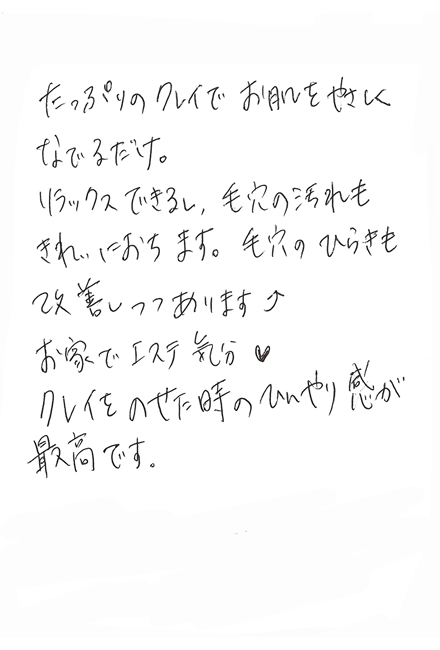 たっぷりのクレイで お肌をやさしく
なでるだけ。
リラックスできるし、毛穴の汚れも
きれいにおちます。毛穴のひらきも
改善しつつあります⤴
お家でエステ気分♥
クレイをのせた時のひんやり感が
最高です。